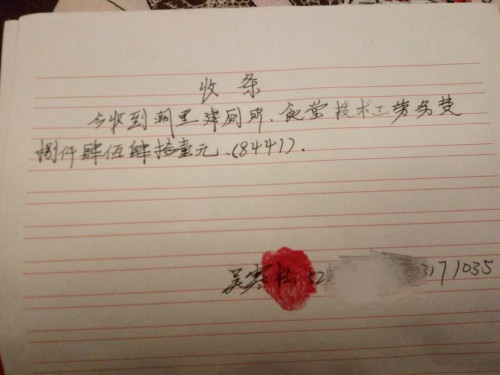 收条
今收到洞里建厕所、食堂技术工劳务费
捌仟肆佰肆拾壹元.(8441).
吴 52 3171035